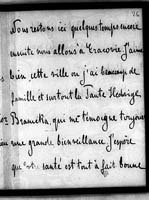 26
restons ici quelques temps encore
ensuite nous allons à Cracovie. J'aime
bien cette ville où j'ai beaucoup de
famille et surtout la Tante Hedwige
Branicka, qui me témoigne toujours
une grande bienveillance. J'espère
que santé est tout à fait bonne